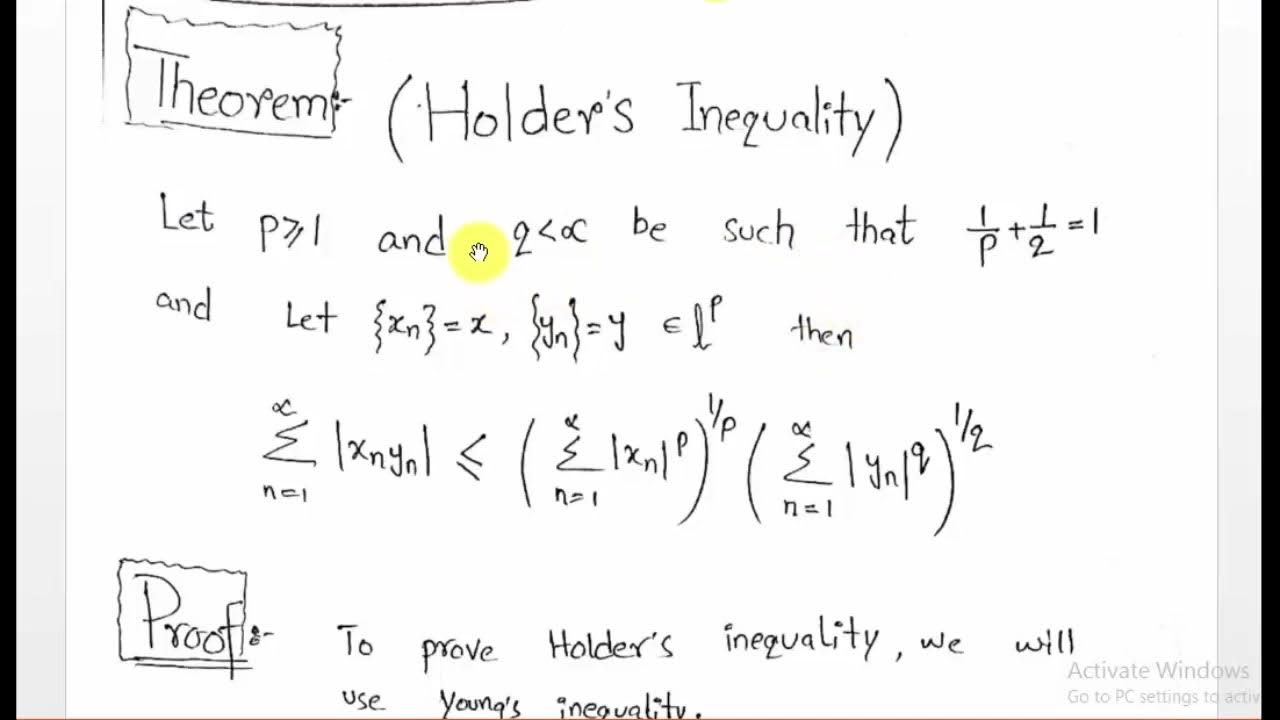 Theorem:- (Holder's Inequality)
Let p ⩾ 1 and q < ∝ be such that 1/p + 1/q = 1
and Let {xn} = x, {yn} = y ∈ l^p then
∝ ∑ n=1 |xn yn| ⩽ ( ∝ ∑ n=1 |xn|^p )^1/p ( ∝ ∑ n=1 |yn|^q )^1/q
Proof:- To prove Holder's inequality, we will
use Young's inequality.
Activate Windows
Go to PC settings to activ